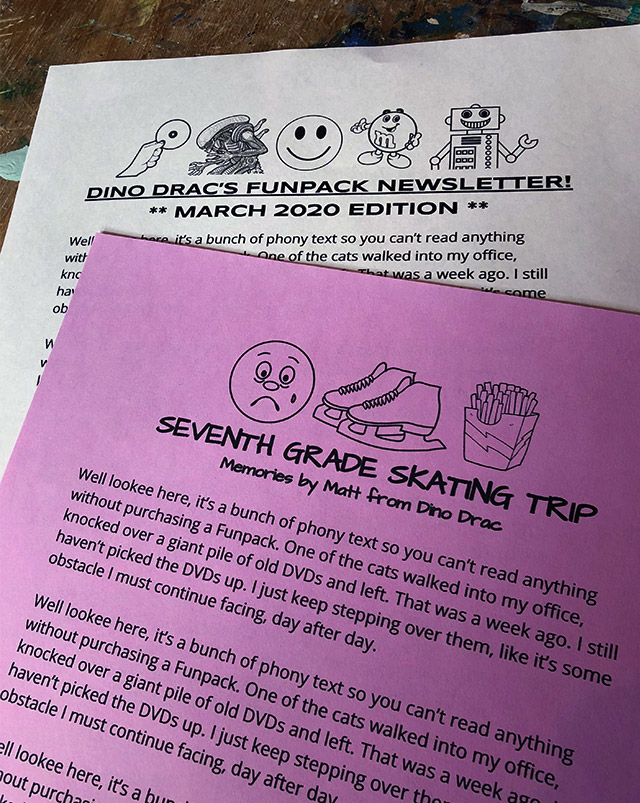 m
DINO DRAC'S FUNPACK NEWSLETTER!
** MARCH 2020 EDITION **
Well here, it's a bunch of phony text so you can't read anything
One of the cats walked into my office,
That was a week ago. I still
it's some
SEVENTH GRADE SKATING TRIP
Memories by Matt from Dino Drac
Well lookee here, it's a bunch of phony text so you can't read anything
without purchasing a Funpack. One of the cats walked into my office,
knocked over a giant pile of old DVDs and left. That was a week ago. I still
haven't picked the DVDs up. I just keep stepping over them, like it's some
obstacle I must continue facing, day after day.
Well lookee here, it's a bunch of phony text so you can't read anything
without purchasing a Funpack. One of the cats walked into my office,
knocked over a giant pile of old DVDs and left. That was a week ago.
haven't picked the DVDs up. I just keep stepping over them
obstacle I must continue facing, day after day.
lookee here, it's a bunch of phony text